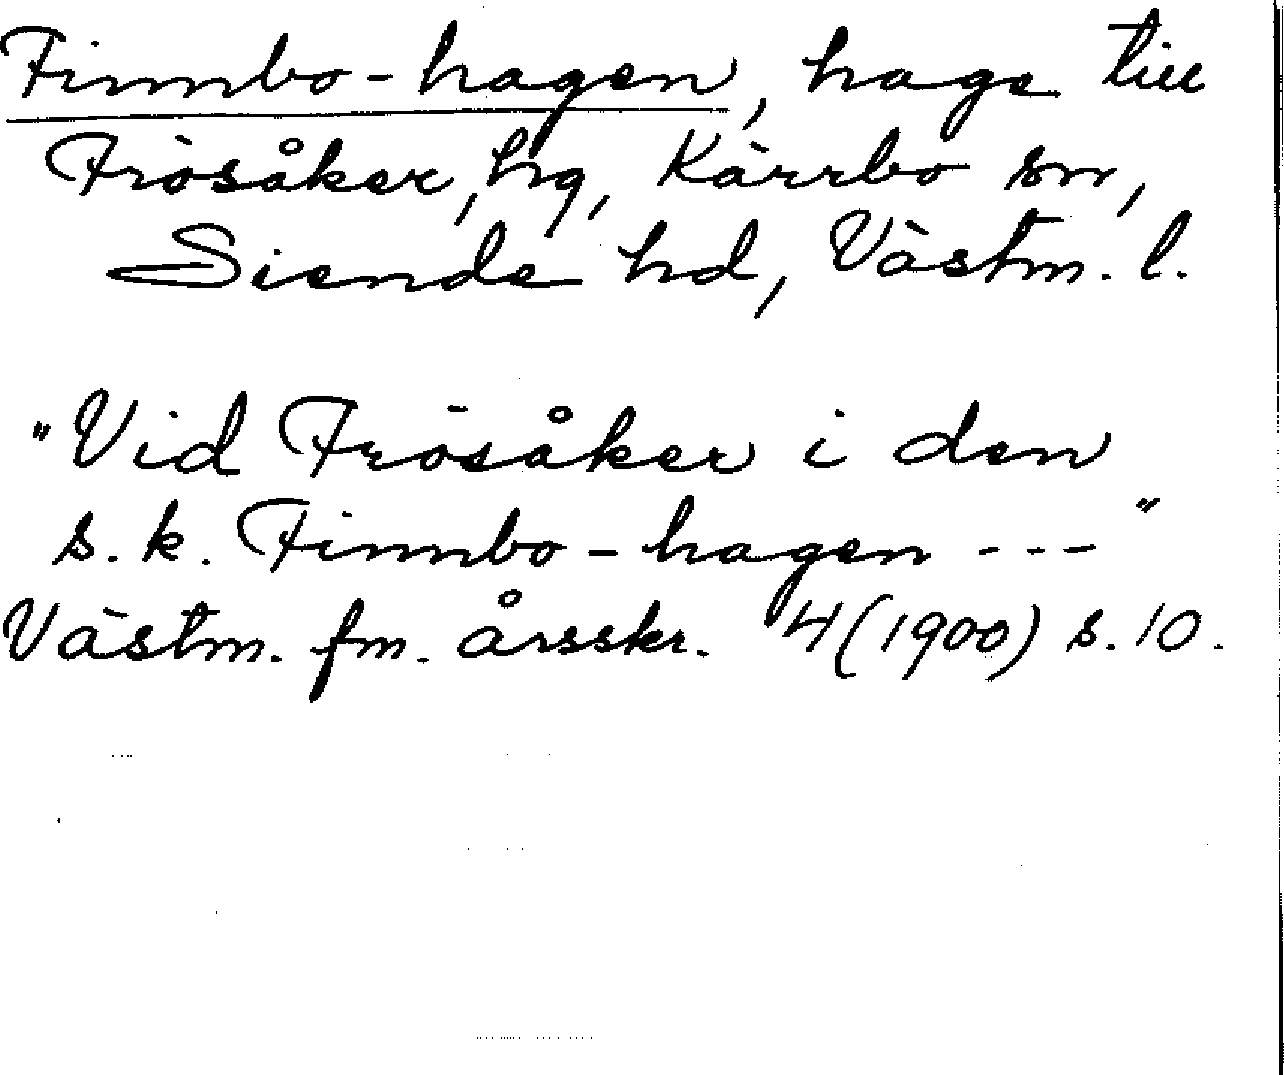 Finnbo-hagen, hage till
Frösåker, hg, Kärrbo sn,
Siende hd, Västm. l.
"Vid Frösåker i den
s.k. Finnbo-hagen ---"
Västm. fm. årsskr. 4 (1900) s. 10.